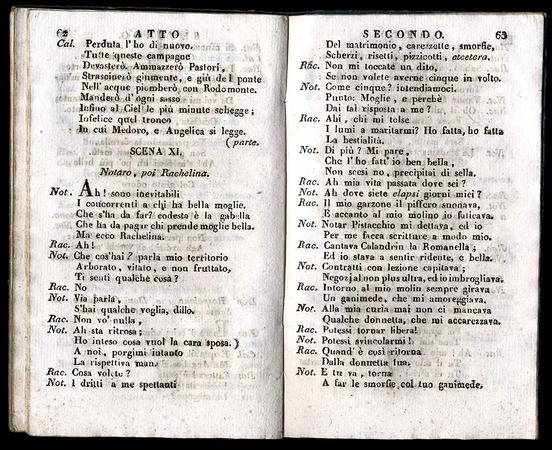 62 ATTO
Cal. Perduta l'ho di nuovo.
Tutte queste campagne
Devasterò. Ammazzerò Pastori,
Strascinerò giumente, e giù del ponte
Nell'acque piomberò, con Rodomonte.
Manderò d'ogni sasso
Infino al Ciel le più minute schegge;
Infelice quel tronco
In cui Medoro, e Angelica si legge.
( parte.
SCENA XI,
Notaro, poi Rachelina.
Not. Ah! sono inevitabili
I concorrenti a chi ha bella moglie.
Che s'ha da far? codesta è la gabella
Che ha da pagar chi prende moglie bella.
Ma ecco Rachelina.
Rac. Ah!
Not. Che cos'hai? parla mio territorio
Arborato, vitato, e non fruttato,
Ti senti qualche cosa?
Rac. No
Not. Via parla,
S'hai qualche voglia, dillo.
Rac. Non vo' nulla,
Not. Ah sta ritrosa;
Ho inteso cosa vuol la cara sposa. )
A noi, porgimi intanto
La rispettiva man.
Rac. Cosa volete?
Not. I dritti a me spettanti
SECONDO. 63
Del matrimonio, carezzette, smorfie,
Scherzi, risetti, pizzicotti, etcetera.
Rac. Non mi toccate un dito,
Se non volete averne cinque in volto.
Not. Come cinque? intendiamoci.
Punto: Moglie, e perchè
Dai tal risposta a me?
Rac. Ahi, chi mi tolse
I lumi a maritarmi? Ho fatta, ho fatta
La bestialità.
Not. Di più? Mi pare,
Che l'ho fatt'io ben bella,
Non scesi no, precipitai di sella.
Rac. Ah mia vita passata dove sei?
Not. Ah dove siete elapsi giorni miei?
Rac. Il mio garzone il piffero suonava,
E accanto al mio molino io faticava.
Not. Notar Pistacchio mi dettava, ed io
Per me facea scritture a modo mio.
Rac. Cantava Calandrin la Romanella;
Ed io stava a sentir ridente, e bella.
Not. Contratti con lezione capitava;
Negozj al non plus ultra, ed io imbrogliava.
Rac. Intorno al mio molin sempre girava
Un ganimede, che mi amoreggiava.
Not. Alla mia curia mai non ci mancava
Qualche donnetta, che mi accarezzava.
Rac. Potessi tornar libera!
Not. Potessi svincolarmi!
Rac. Quand'è così ritorna
Dalla donnetta tua.
Not. E tu va, torna
A far le smorfie col tuo ganimede.